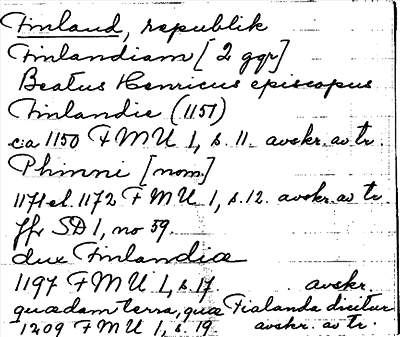 Finland, republik
Finlandiam [2 ggr]
Beatus Henricus episcopus
Finlandie (1151)
ca 1150 FMU 1, s. 11. avskr. av tr.
Phinni [nom.]
1171 el. 1172 FMU 1, s. 12. avskr. av tr.
jfr SD 1, no 59.
dux Finlandiæ
1197 FMU 1, s. 17. avskr.
quædam terra, quæ Fialanda dicitur
1209 FMU 1, s. 19. avskr. av tr.